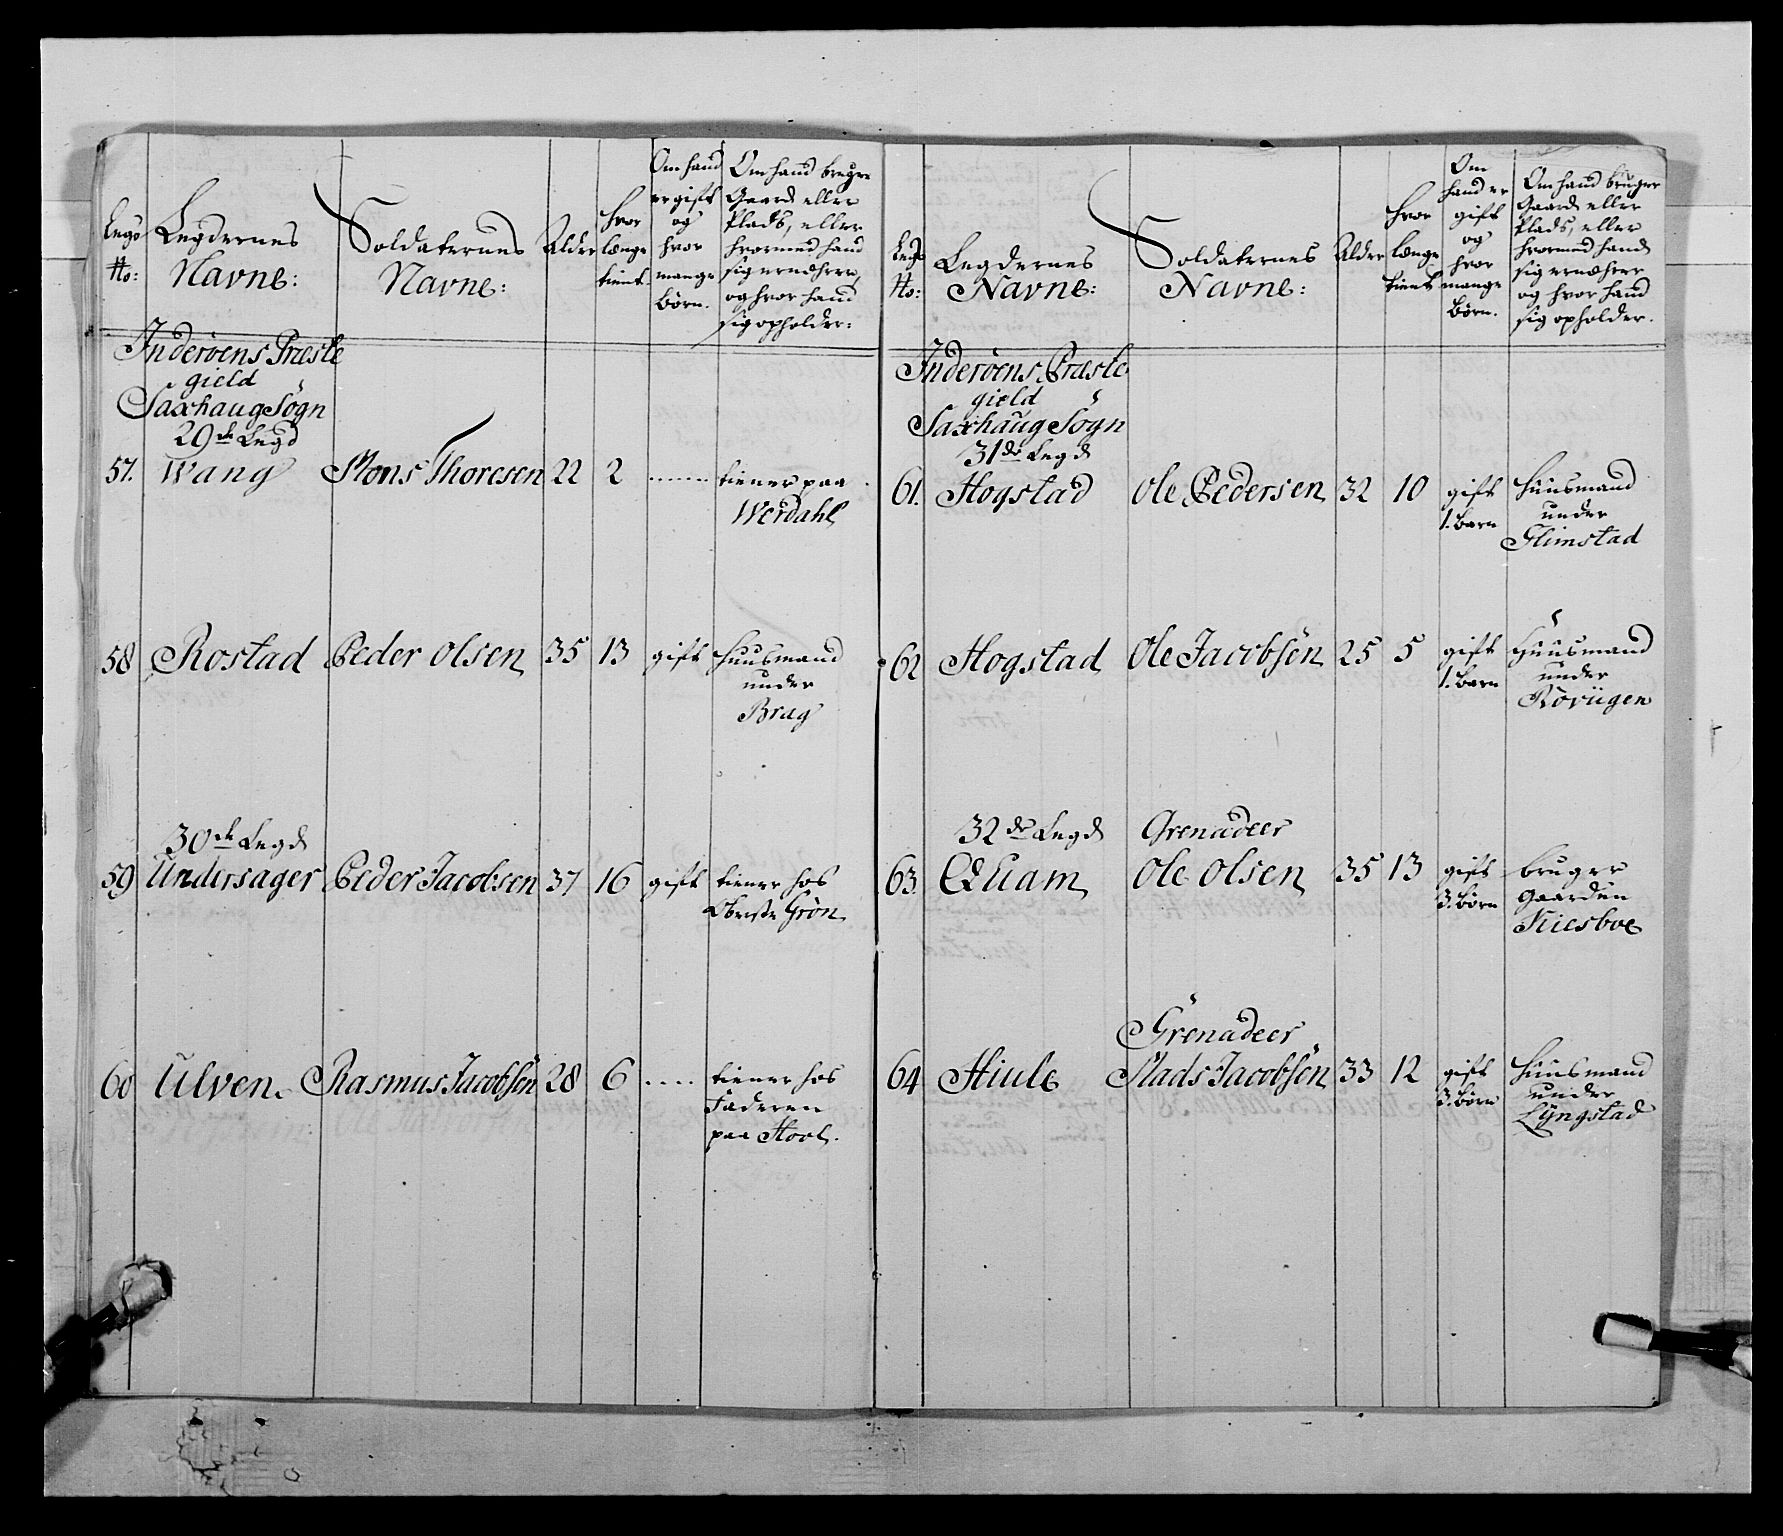 Legds No:
Legdernes Navne:
Soldaternes Navne:
Alder
hvor længe tient.
Om hand er gift og hvor mange børn.
Om hand bruger Gaard eller Plads, eller hvormed hand sig ernæhrer, og hvor hand sig opholder:
Inderöens Præste
gield
Saxhaug Sögn
29de Legd
57. Wang Mons Thoresen 22 2 ....... tiener paa
Werdahl
58 Rostad Peder Olsen 35 13 gift Huusmand
under
Brag
30de Legd
59 Undersager Peder Jacobsen 37 16 gift tiener hos
Obriste Grön
60 Ulven Rasmus Jacobsen 28 6 ..... tiener hos
Faderen
paa Hool.
Legds No:
Legdernes Navne:
Soldaternes Navne:
Alder
hvor længe tient
Om hand er gift og hvor mange børn.
Om hand bruger Gaard eller Plads, eller hvormed hand sig ernæhrer og hvor hand sig opholder.
Inderöens Præste
gield
Saxhaug Sögn
31de Legd
61. Hogstad Ole Pedersen 32 10 gift Huusmand
1. barn under
Glimstad
62 Hogstad Ole Jacobsen 25 5 gift Huusmand
1. barn under
Rövügen
32de Legd Grenadeer
63. Quam Ole Olsen 35 13 gift bruger
3. børn Gaarden
Kiesboe
Grenadeer
64 Hiule Mads Jacobsen 33 12 gift Huusmand
3. børn under
Lÿngstad